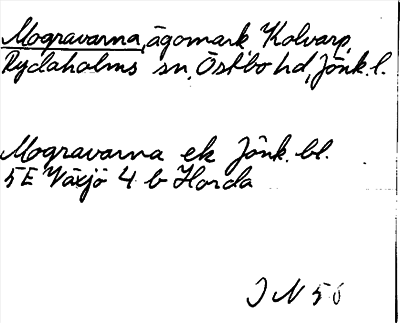 Mogravarna, ägomark, Kolvarp,
Rydaholms sn, Östbo hd, Jönk. l.
Mogravarna ek Jönk. bl.
5E Växjö 4 b Horda
J N 56